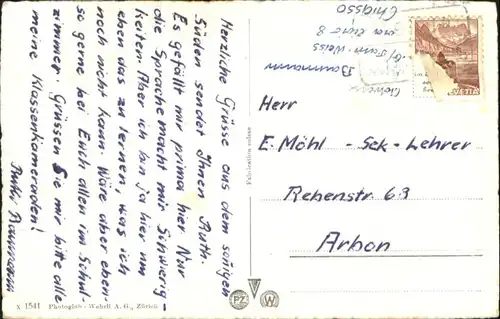 Herzliche Grüsse aus dem sonnigen
Süden sendet Ihnen Ruth.
Es gefällt mir prima hier Nur
die Sprache macht mir Schwierig-
keiten. Aber ich bin ja hier um
eben das zu lernen, was ich
noch nicht kann. Wäre aber eben-
so gerne bei Euch allen im Schul-
zimmer. Grüssen Sie mir bitte alle
meine Klassenkameraden!
Ruth Baumann
Baumann
Chiasso
HELVETIA
Herr
E. Möhl - Sek-Lehrer
Rebenstr 63
Arbon
PZ W
X 1541 Photoglob-Wehrli A. G., Zürich